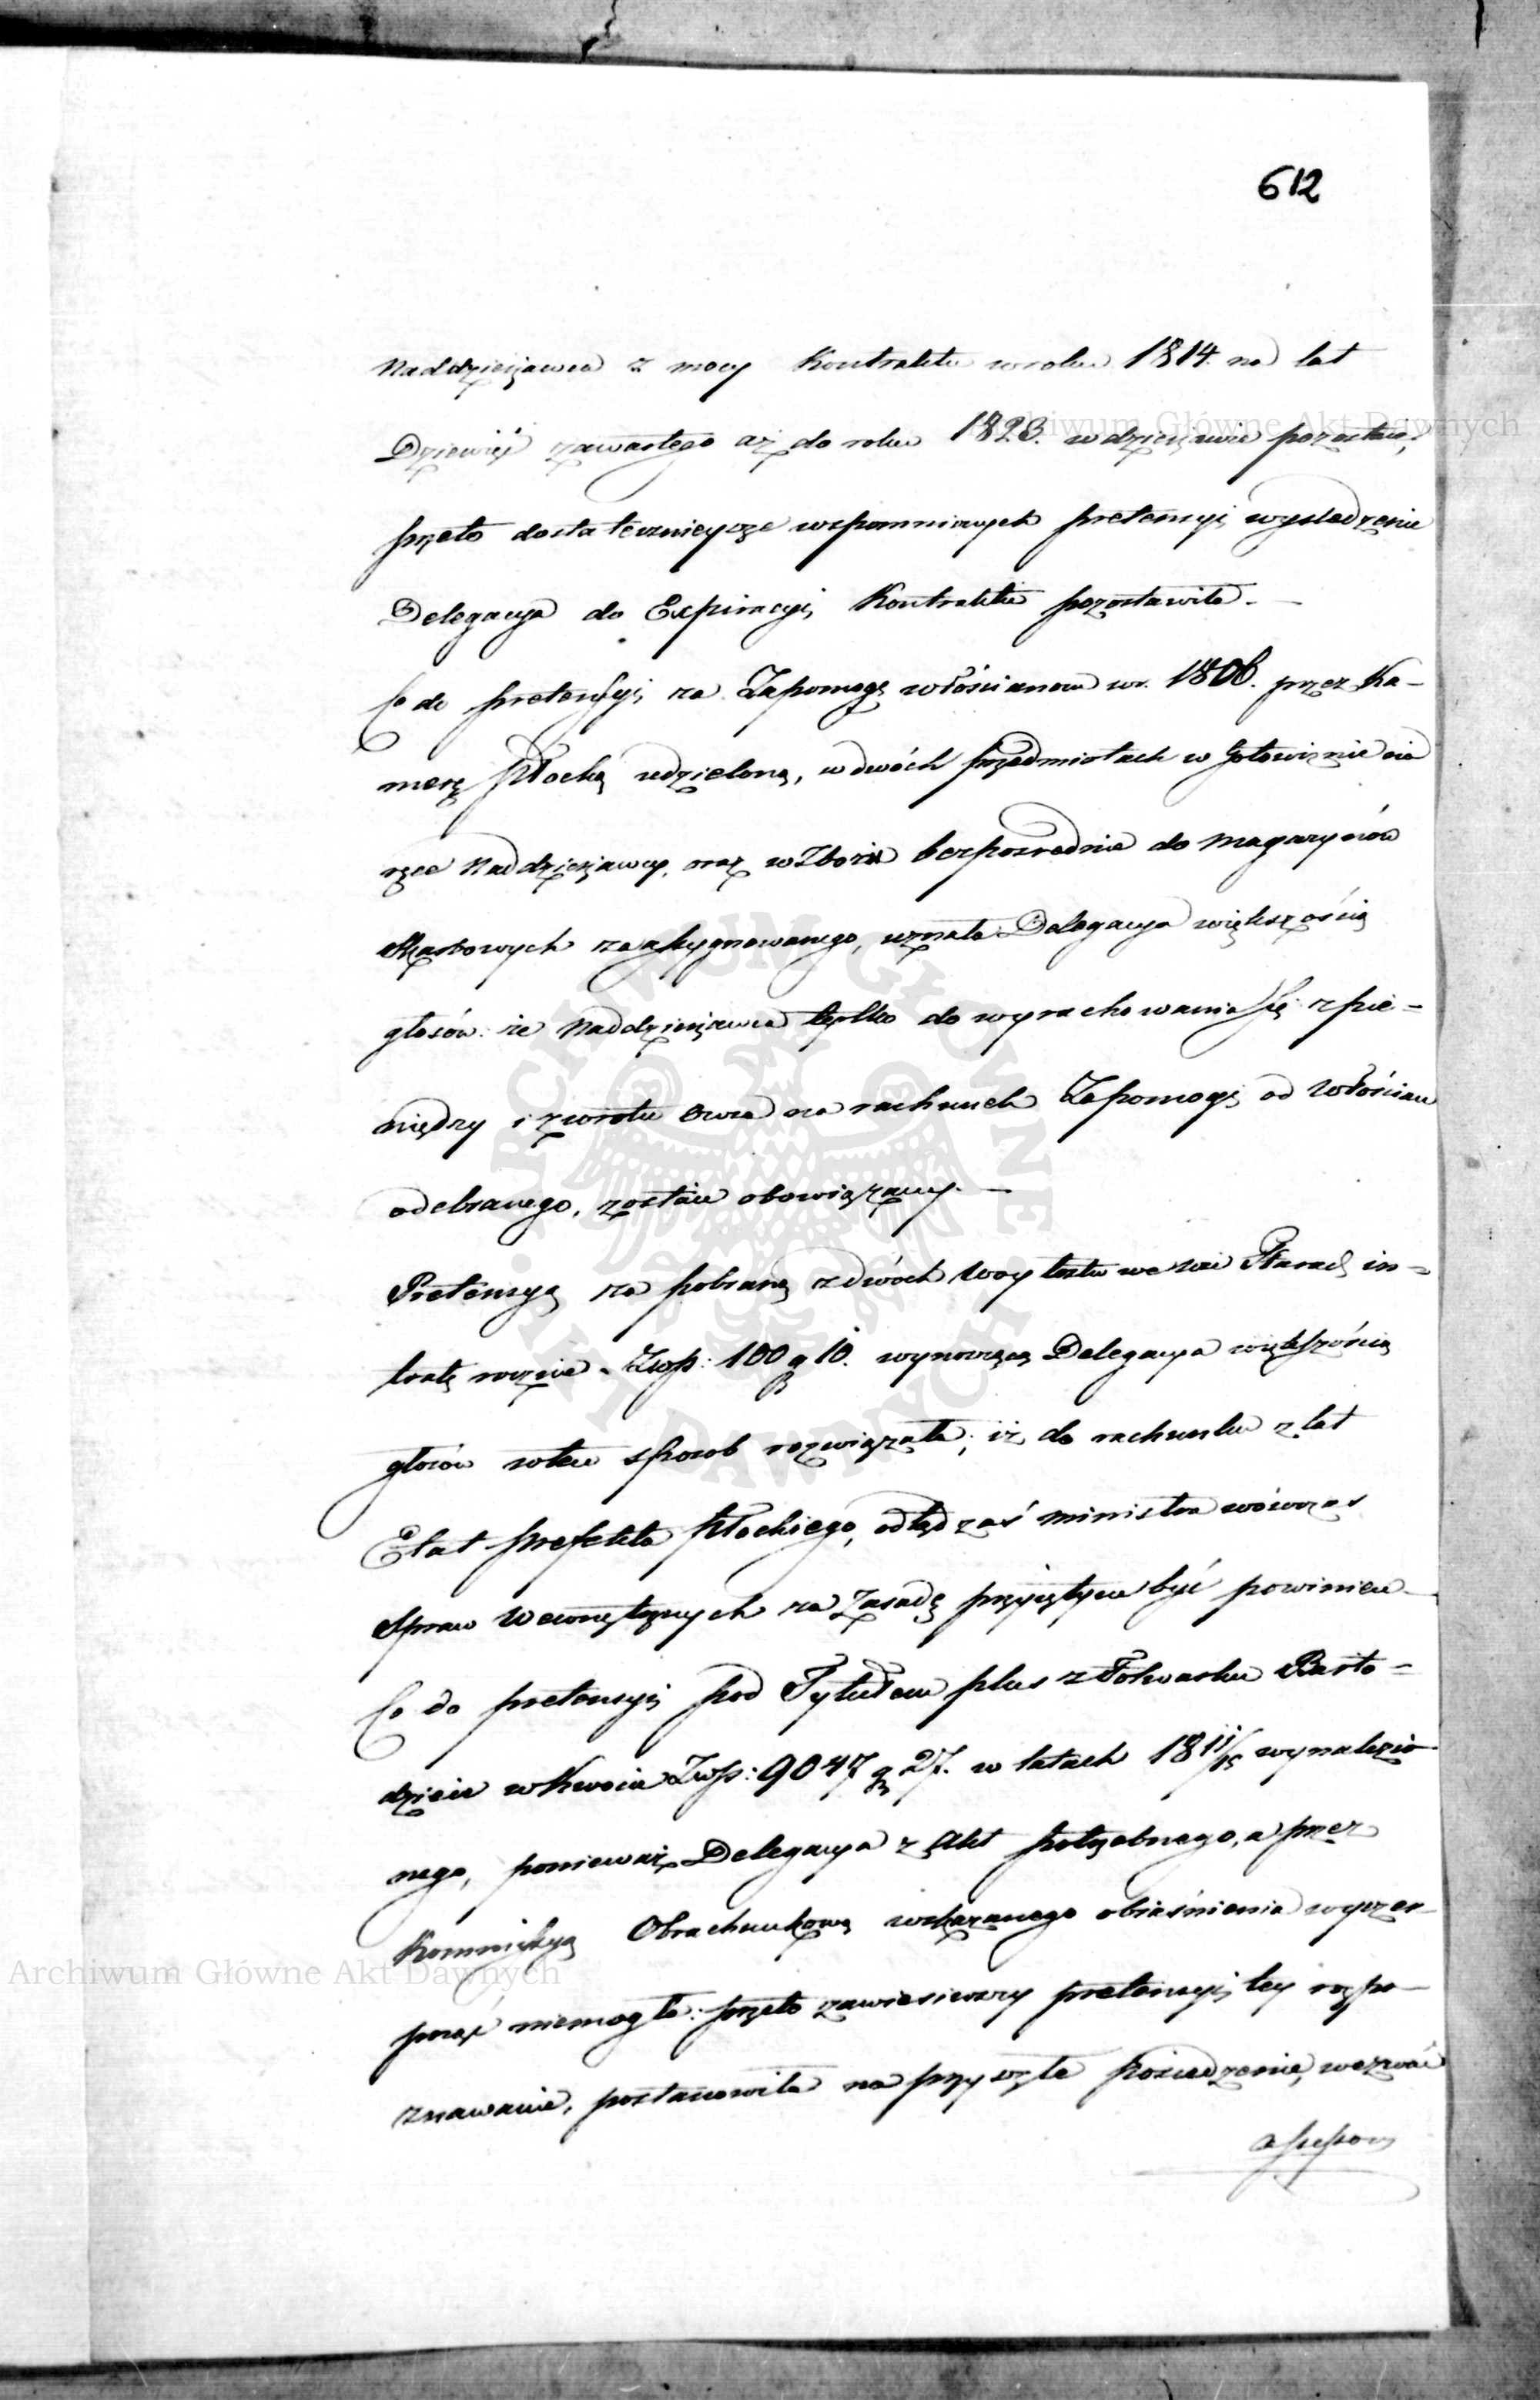 612
Naddzierżawca z mocy Kontraktu w roku 1814. na lat
Dziewięć zawartego aż do roku 1823. w dzierżawie pozostaie,
przeto dostatecznieysze wspomnionych pretensyi wysledzenie
Delegacya do Expiracyi Kontraktu pozostawiła. —
Co do pretensyi za Zapomogę włościanom w r. 1806. przez Ka-
merę Płocką udzieloną, w dwóch przedmiotach w Gotowiznie na
ręce Naddzierżawcy, oraz w Zbożu bezpośrednie do Magazynów
Skarbowych zaassygnowanego, uznała Delegacya większością
głosów: że Naddzierżawca tylko do wyrachowania się z pie-
niędzy i zwrotu Owsa na rachunek Zapomogi od Włościan
odebranego, zostaie obowiązany. —
Pretensyą za pobraną z dwóch Woytostw we wsi in-
tratę rocznie Złłp: 100 gr 10. wynoszącą Delegacya większością
głosów w ten sposob rozwiązała; iż do rachunku z lat
Etat Prefekta Płockiego, odtąd zaś Ministra wówczas
Spraw Wewnętrznych za Zasadę przyiętym być powinien —
Co do pretensyi pod Tytułem plus z Folwarku Barto-
dzieie w Kwocie Złłp: 9047 gr 27. w latach 18 11/15 wynalezio-
nego, ponieważ Delegacya z Akt potrzebnego, a przez
Kommissyą Obrachunkową wskazanego obiaśnienia wyczer-
pnąć niemogła: przeto zawiesiwszy pretensyi tey rozpo-
znawanie, postanowiła na przyszłe posiedzenie, wezwać
Assessora
Archiwum Główne Akt Dawnych
Archiwum Główne Akt Dawnych
ARCHIWUM GŁÓWNE AKT DAWNYCH